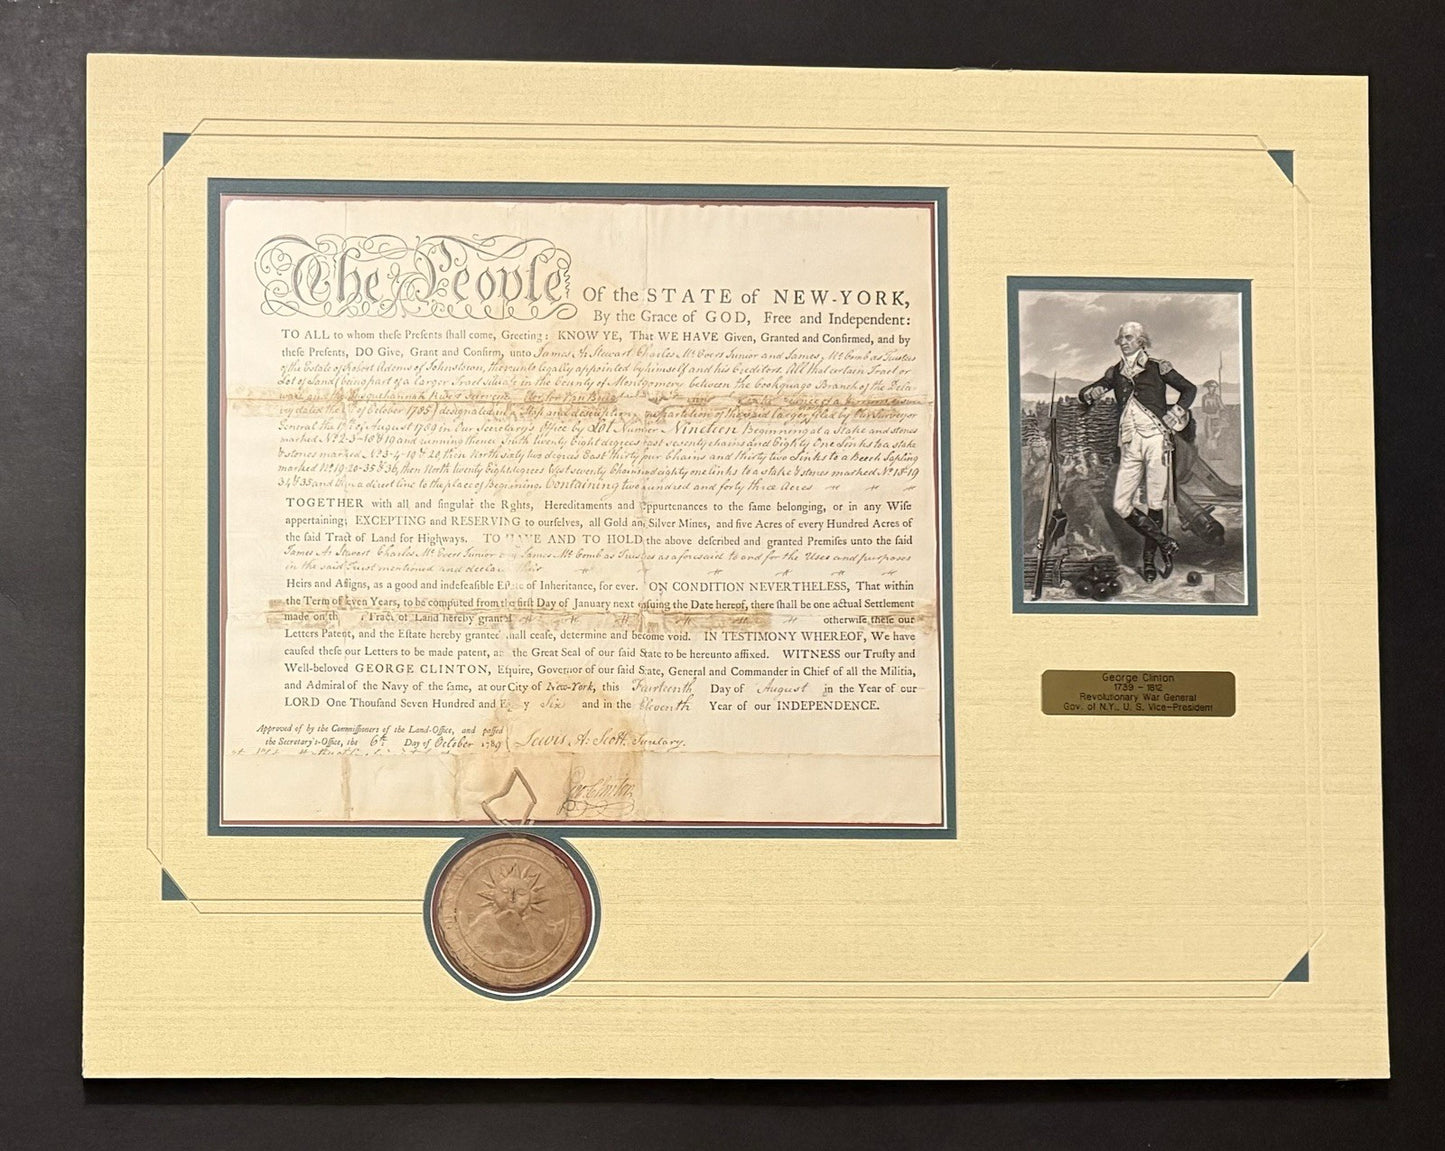 The People
Of the STATE of NEW-YORK,
By the Grace of GOD, Free and Independent:
TO ALL to whom theſe Preſents ſhall come, Greeting: KNOW YE, That WE HAVE Given, Granted and Confirmed, and by
theſe Preſents, DO Give, Grant and Confirm, unto James A. Stewart Charles Mc. Evers Junior and James, Mc. Comb as Trustees
of the Estate of Robert Adems of Johnstown, thereunto legally appointed by himself and his Creditors. All that certain Tract or
Lot of Land (being part of a larger Tract situate in the County of Montgomery between the Cookquago Branch of the Dela-
ware and the Susquehannah River
dated the of October 1785) designated in a Map and description partition of the said larger filed by Our Surveyor
General the of August 1786 in Our Secretary's Office by Lot Number Nineteen Beginning at a Stake and stones
marked No. 2-3-18 & 19 and running thence South twenty Eight degrees East seventy chains and Eighty One Links to a stake
& stones marked No. 3-4-19 & 20 then North sixty two degrees East thirty four Chains and thirty two Links to a Beech Sapling
marked No. 19-20-35 & 36, then North twenty Eight degrees West seventy Chains and eighty one links to a stake & stones marked No. 18-19
34 & 35 and then a direct line to the place of Beginning. Containing two hundred and forty three Acres
TOGETHER with all and ſingular the Rights, Hereditaments and Appurtenances to the ſame belonging, or in any Wiſe
appertaining; EXCEPTING and RESERVING to ourſelves, all Gold and Silver Mines, and five Acres of every Hundred Acres of
the ſaid Tract of Land for Highways. TO HAVE AND TO HOLD the above deſcribed and granted Premiſes unto the ſaid
James A. Stewart Charles Mc. Evers Junior and James Mc. Comb as Trustees as aforesaid to and for the Uses and purposes
in the said Trust mentioned and declared their
Heirs and Aſſigns, as a good and indefeaſible Eſtate of Inheritance, for ever. ON CONDITION NEVERTHELESS, That within
the Term of Seven Years, to be computed from the firſt Day of January next enſuing the Date hereof, there ſhall be one actual Settlement
made on the Tract of Land hereby granted otherwiſe theſe our
Letters Patent, and the Eſtate hereby granted ſhall ceaſe, determine and become void. IN TESTIMONY WHEREOF, We have
cauſed theſe our Letters to be made patent, and the Great Seal of our ſaid State to be hereunto affixed. WITNESS our Truſty and
Well-beloved GEORGE CLINTON, Eſquire, Governor of our ſaid State, General and Commander in Chief of all the Militia,
and Admiral of the Navy of the ſame, at our City of New-York, this Fourteenth Day of August in the Year of our
LORD One Thouſand Seven Hundred and Eighty Six and in the Eleventh Year of our INDEPENDENCE.
Approved of by the Commiſſioners of the Land-Office, and paſſed
the Secretary's-Office, the 6th Day of October 1789
Lewis A. Scott, Secretary.
Geo. Clinton
George Clinton
1739 - 1812
Revolutionary War General
Gov. of N.Y., U. S. Vice-President